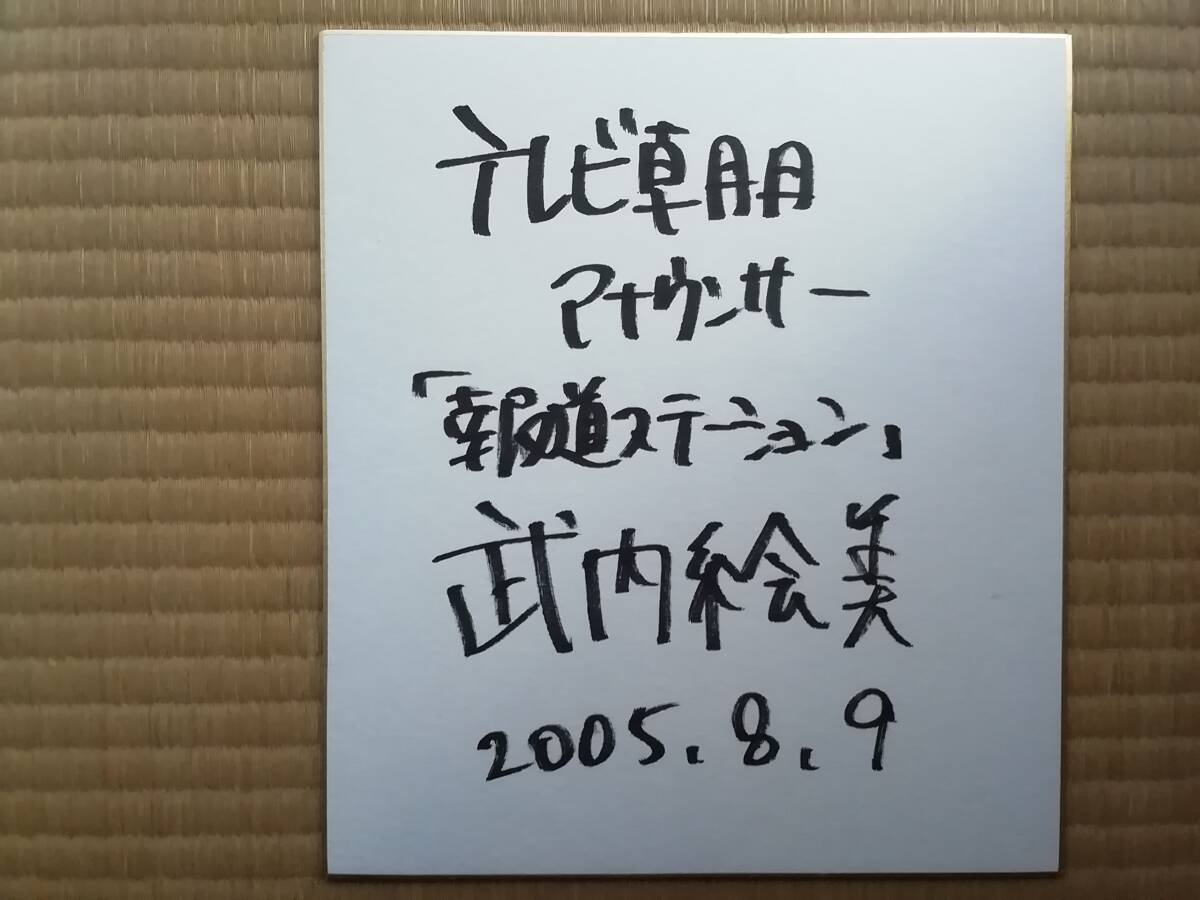 テレビ朝日
アナウンサー
「報道ステーション」
武内絵美
2005.8.9